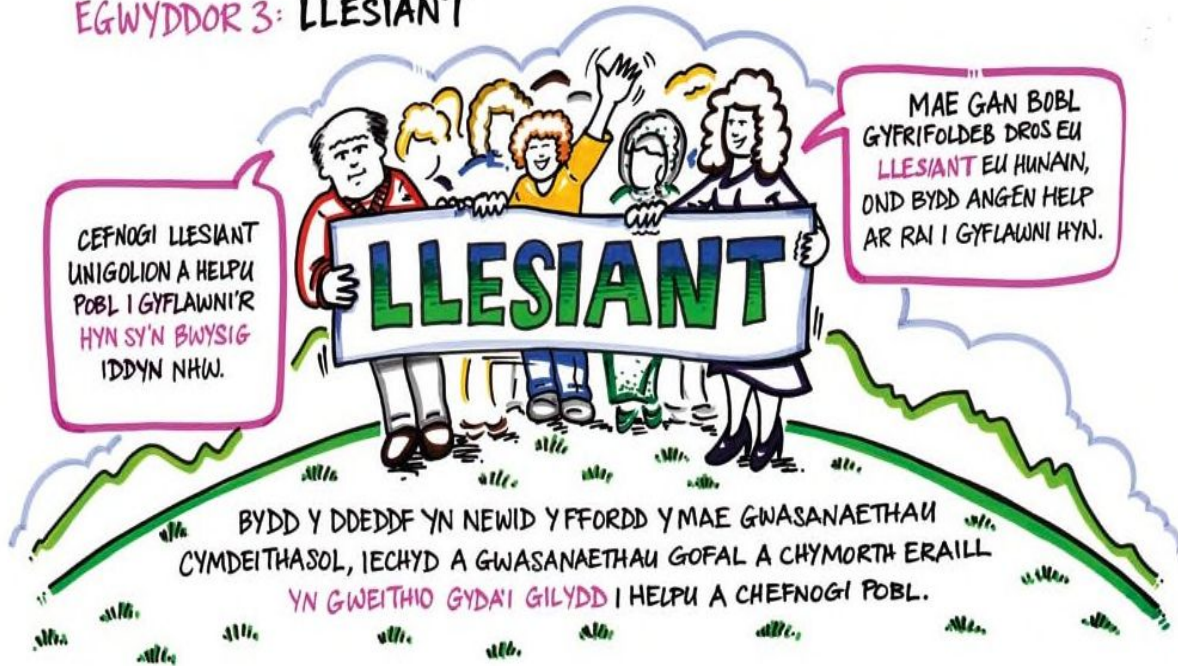 EGWYDDOR 3: LLESIANT
CEFNOGI LLESIANT
UNIGOLION A HELPU
POBL I GYFLAWNI'R
HYN SY'N BWYSIG
IDDYN NHW.
MAE GAN BOBL
GYFRIFOLDEB DROS EU
LLESIANT EU HUNAIN,
OND BYDD ANGEN HELP
AR RAI I GYFLAWNI HYN.
LLESIANT
BYDD Y DDEDDF YN NEWID Y FFORDD Y MAE GWASANAETHAU
CYMDEITHASOL, IECHYD A GWASANAETHAU GOFAL A CHYMORTH ERAILL
YN GWEITHIO GYDA'I GILYDD I HELPU A CHEFNOGI POBL.